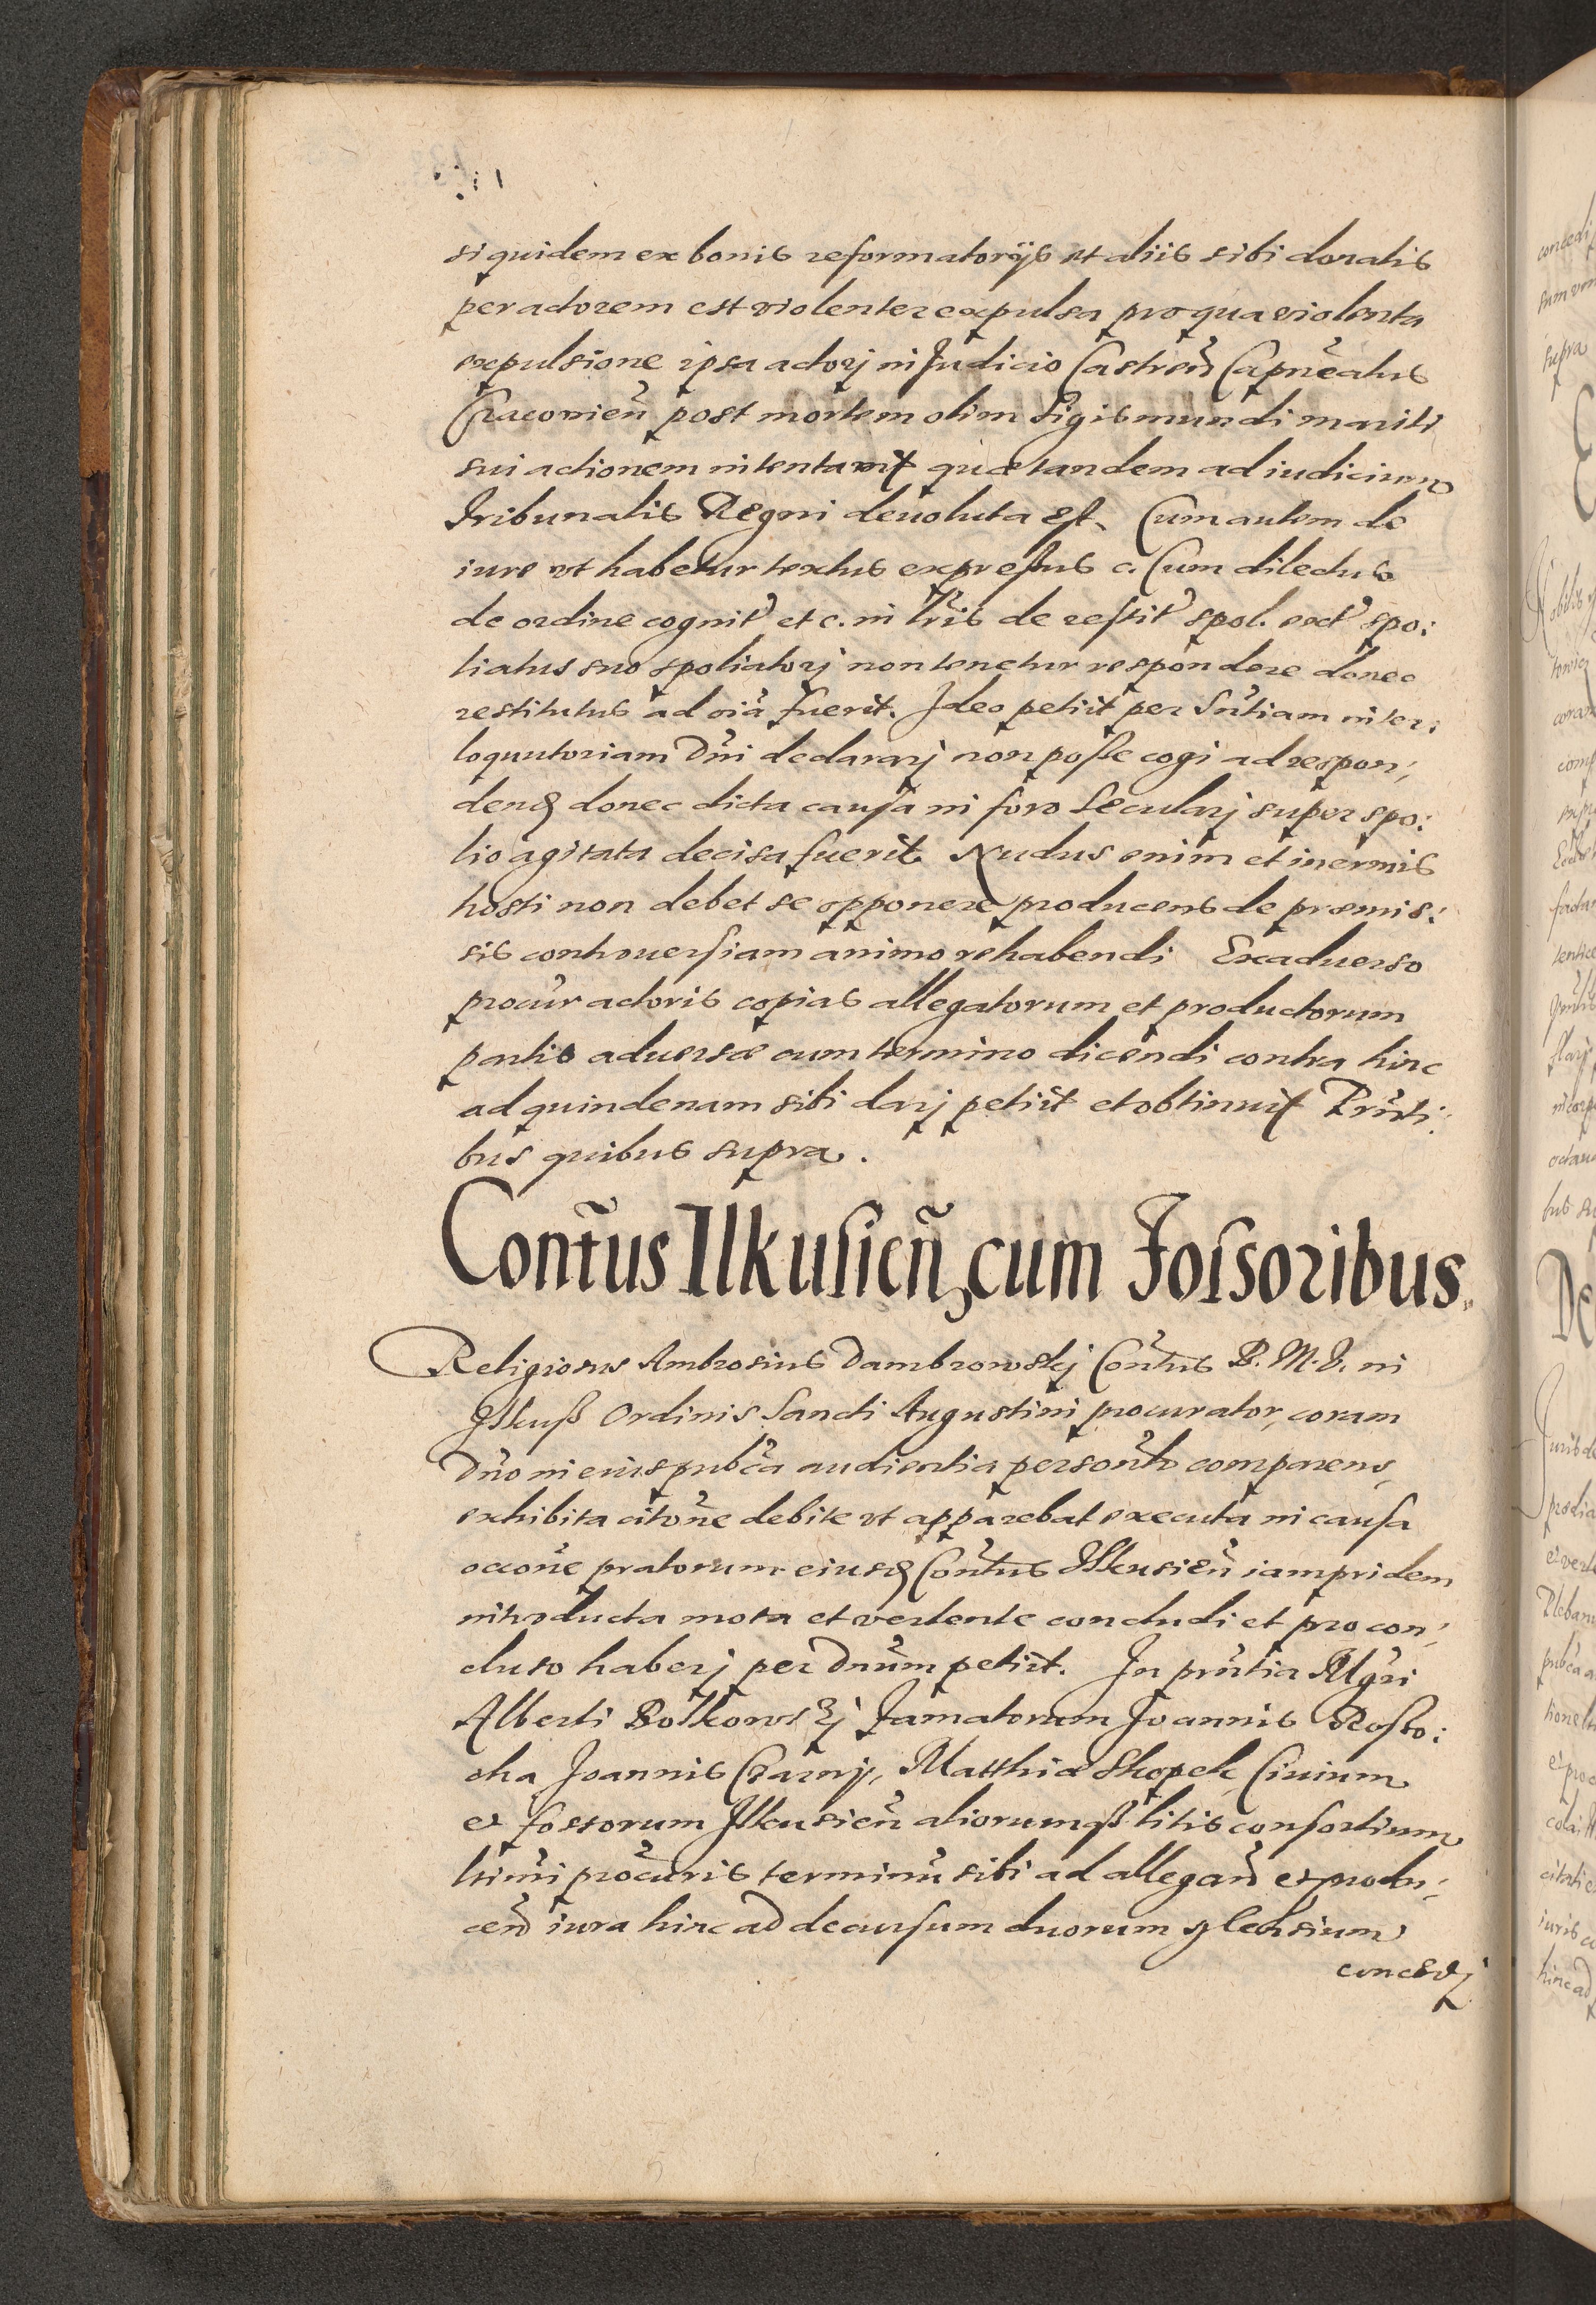 siquidem ex bonis reformatorijs et aliis sibi donatis
per actorem est violenter expulsa pro qua violenta
expulsione ipsa actorj in Judicio Castren̄ Capn̄eatus
Cracovien̄ post mortem olim Sigismundi mariti
sui actionem intentavit quæ tandem ad iudicium
Tribunalis Regni devoluta est. Cum autem de
iure vt habetur textus expressus c. Cum dilectus
de ordine cognit et c. in lr̄is de restit spol. spo:
liatus suo spoliatorj non tenetur respondere donec
restitutus ad oīa fuerit. Ideo petiit per sn̄tiam inter:
loquutoriam Dn̄i declararj non posse cogi ad respon:
dend donec dicta causa in foro secularj super spo:
lio agitata decisa fuerit. Nudus enim et inermis
hosti non debet se opponere producens de præmis:
sis controuersiam animo rehabendi Ex aduerso
procur actoris copias allegatorum et productorum
partis aduersæ cum termino dicendi contra hinc
ad quindenam sibi darj petiit et obtinuit Pn̄ti:
bus quibus supra.
Conn̄tus Ilkusien̄ cum Fossoribus.
Religiosus Ambrosius Dambrowskj Conn̄tus B. M. V. in
Ilkusß Ordinis Sancti Augustini procurator, coram
Dn̄o in eius publca audientia personlr comparens,
exhibita citōne debite vt apparebat executa in causa
occōne pratorum eiusd Conn̄tus Ilkusien̄ iampridem
introducta mota et vertente concludi et pro con:
cluso haberj per Dn̄um petiit. In pn̄tia Mgri
Alberti Bolkowskj famatorum Joannis Rosto:
cha Joannis Czarnj, Matthiæ Skopek Civium
et fossorum Ilkusien̄ aliorumqß litis consortium
ltimi procuris terminū sibi ad allegand et produ:
cend iura hinc ad decursum duorum
concedj